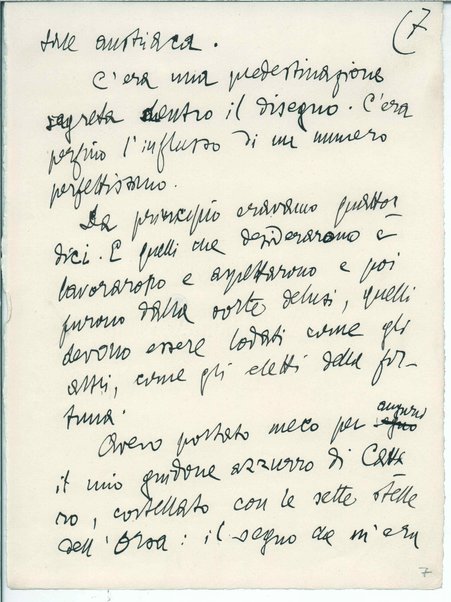 (7
tale austriaca.
C'era una predestinazione
segreta dentro il disegno. C'era
perfino l'influsso di un numero
perfettissimo.
Da principio eravamo quattor
dici. E quelli che desiderarono e
lavorarono e aspettarono e poi
furono dalla sorte delusi, quelli
devono essere lodati come gli
altri, come gli eletti della for-
tuna.
augurio
Avevo portato meco per segno
il mio guidone azzurro di Catta
ro, costellato con le sette stelle
dell'Orsa: il segno che m'era
7